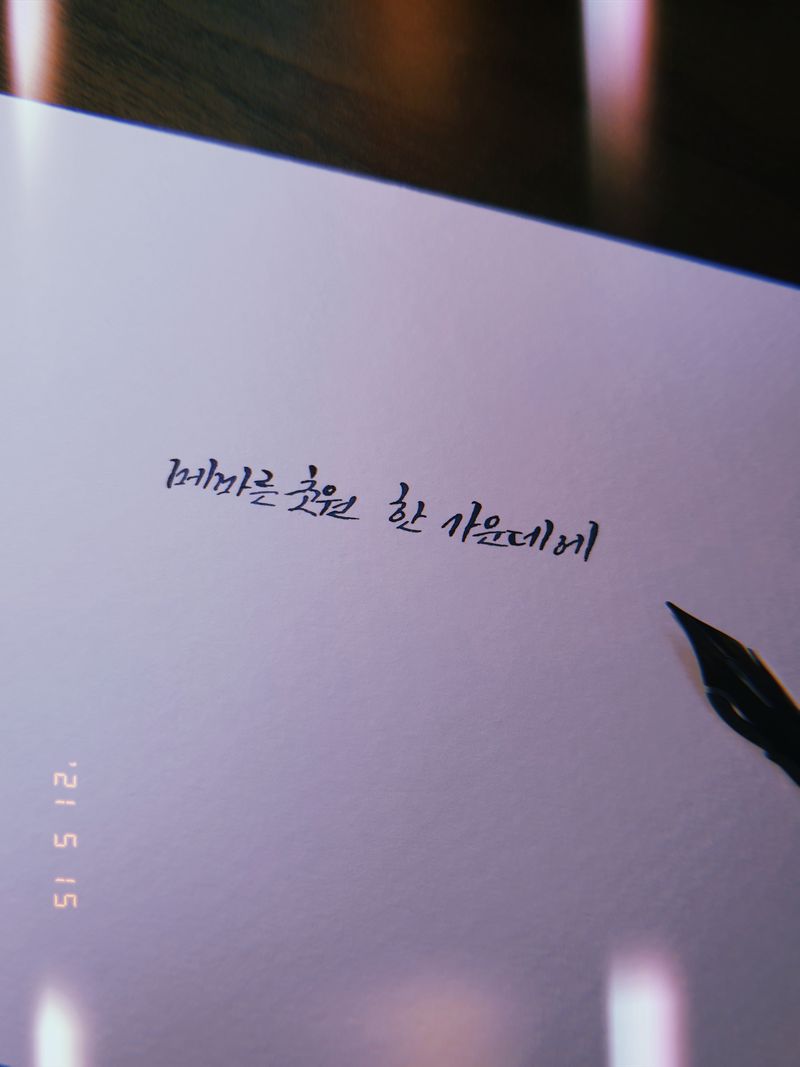 메마른 초원 한 가운데에
'21 5 15